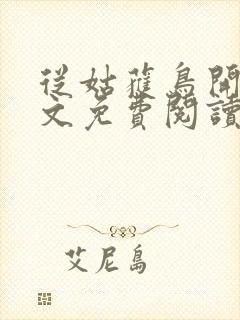 從姑蘿鳥開
文免費閱讀
艾尼島